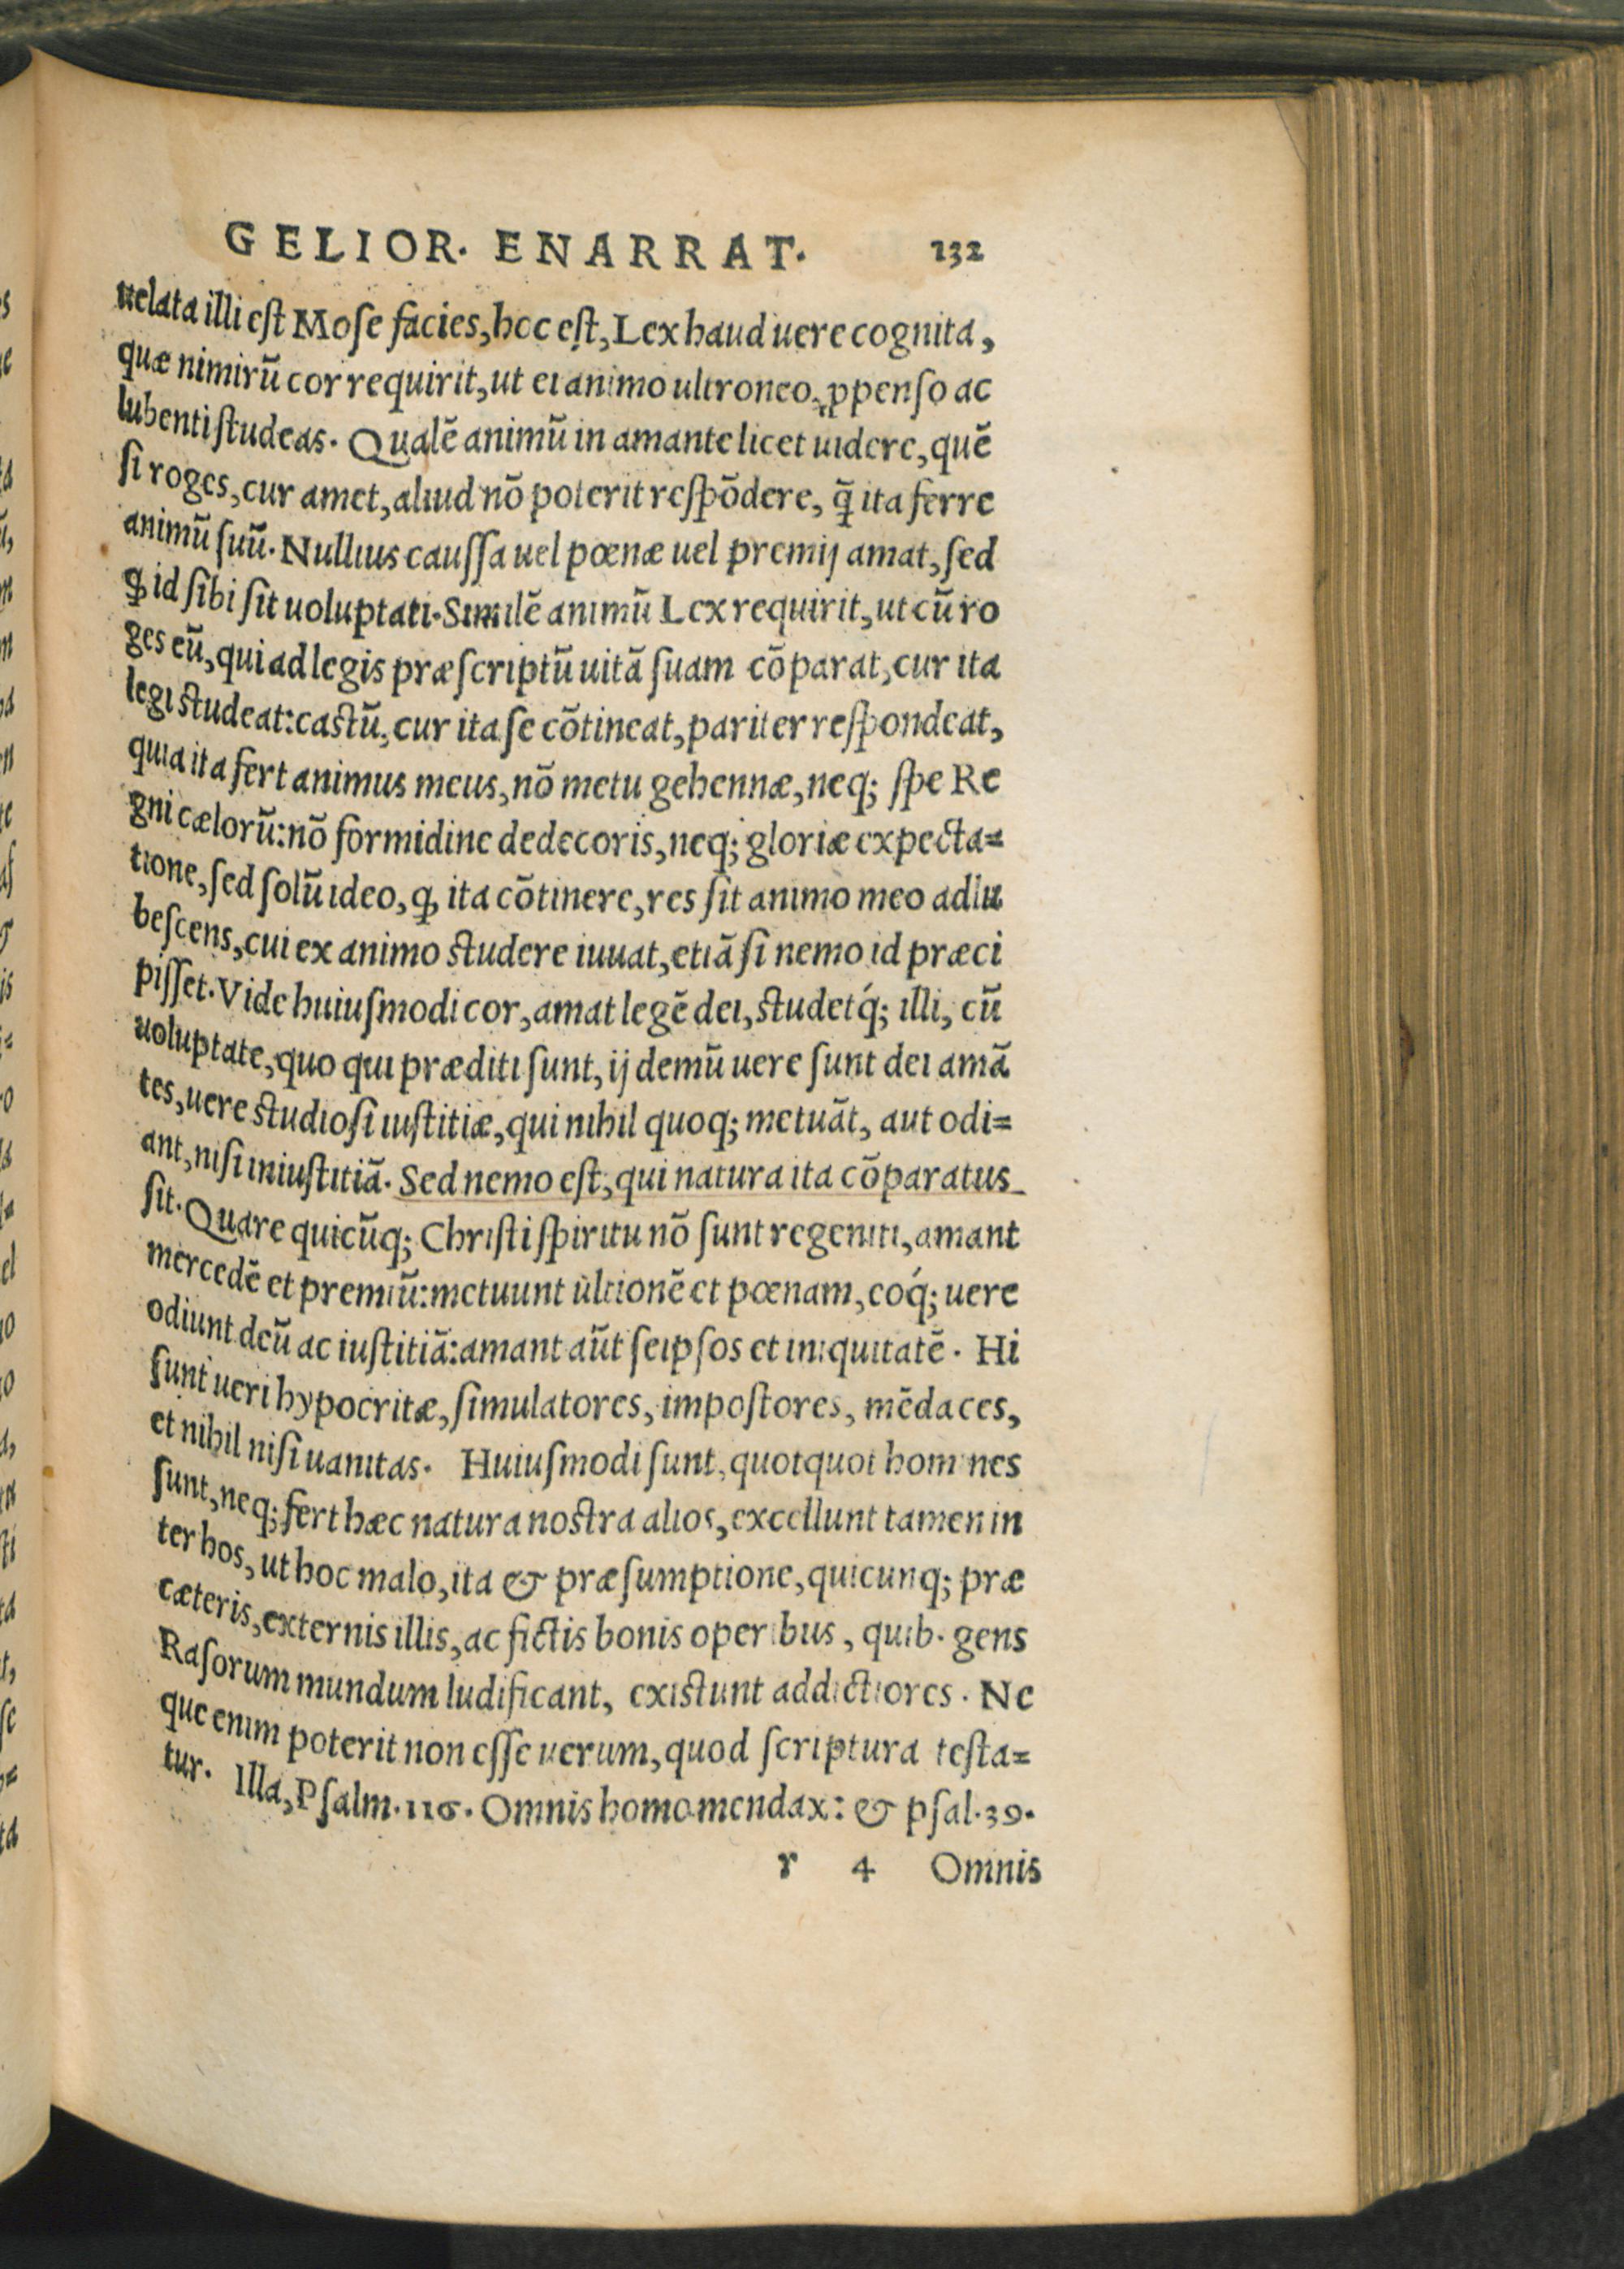 GELIOR. ENARRAT. 132
uelata illi est Mose facies, hoc est, Lex haud uere cognita,
quæ nimirũ cor requirit, ut ei animo ultroneo, ꝓpenso ac
lubenti studeas. Qualẽ animũ in amante licet uidere, quẽ
si roges, cur amet, aliud nõ poterit respõdere, q̃ ita ferre
animũ suũ. Nullius caussa uel pœnæ uel premij amat, sed
ꝙ id sibi sit uoluptati. Similẽ animũ Lex requirit, ut cũ ro
ges eũ, qui ad legis præscriptũ uitã suam cõparat, cur ita
legi studeat: castũ, cur ita se cõtineat, pariter respondeat,
quia ita fert animus meus, nõ metu gehennæ, neq; spe Re
gni cælorũ: nõ formidine dedecoris, neq; gloriæ expecta=
tione, sed solũ ideo, ꝙ ita cõtinere, res sit animo meo adlu
bescens, cui ex animo studere iuuat, etiã si nemo id præci
pisset. Vide huiusmodi cor, amat legẽ dei, studetq́; illi, cũ
uoluptate, quo qui præditi sunt, ij demũ uere sunt dei amã
tes, uere studiosi iustitiæ, qui nihil quoq; metuãt, aut odi=
ant, nisi iniustitiã. Sed nemo est, qui natura ita cõparatus
sit. Quare quicũq; Christi spiritu nõ sunt regeniti, amant
mercedẽ et premiũ: metuunt ultionẽ et pœnam, eoq́; uere
odiunt deũ ac iustitiã: amant aũt seipsos et iniquitatẽ. Hi
sunt ueri hypocritæ, simulatores, impostores, mẽdaces,
et nihil nisi uanitas. Huiusmodi sunt, quotquot homines
sunt, neq; fert hæc natura nostra alios, excellunt tamen in
ter hos, ut hoc malo, ita & præsumptione, quicunq; præ
cæteris, externis illis, ac fictis bonis operibus, quib. gens
Rasorum mundum ludificant, existunt addictiores. Ne
que enim poterit non esse uerum, quod scriptura testa=
tur. Illa, Psalm. 116. Omnis homo mendax: & psal. 39.
r 4 Omnis